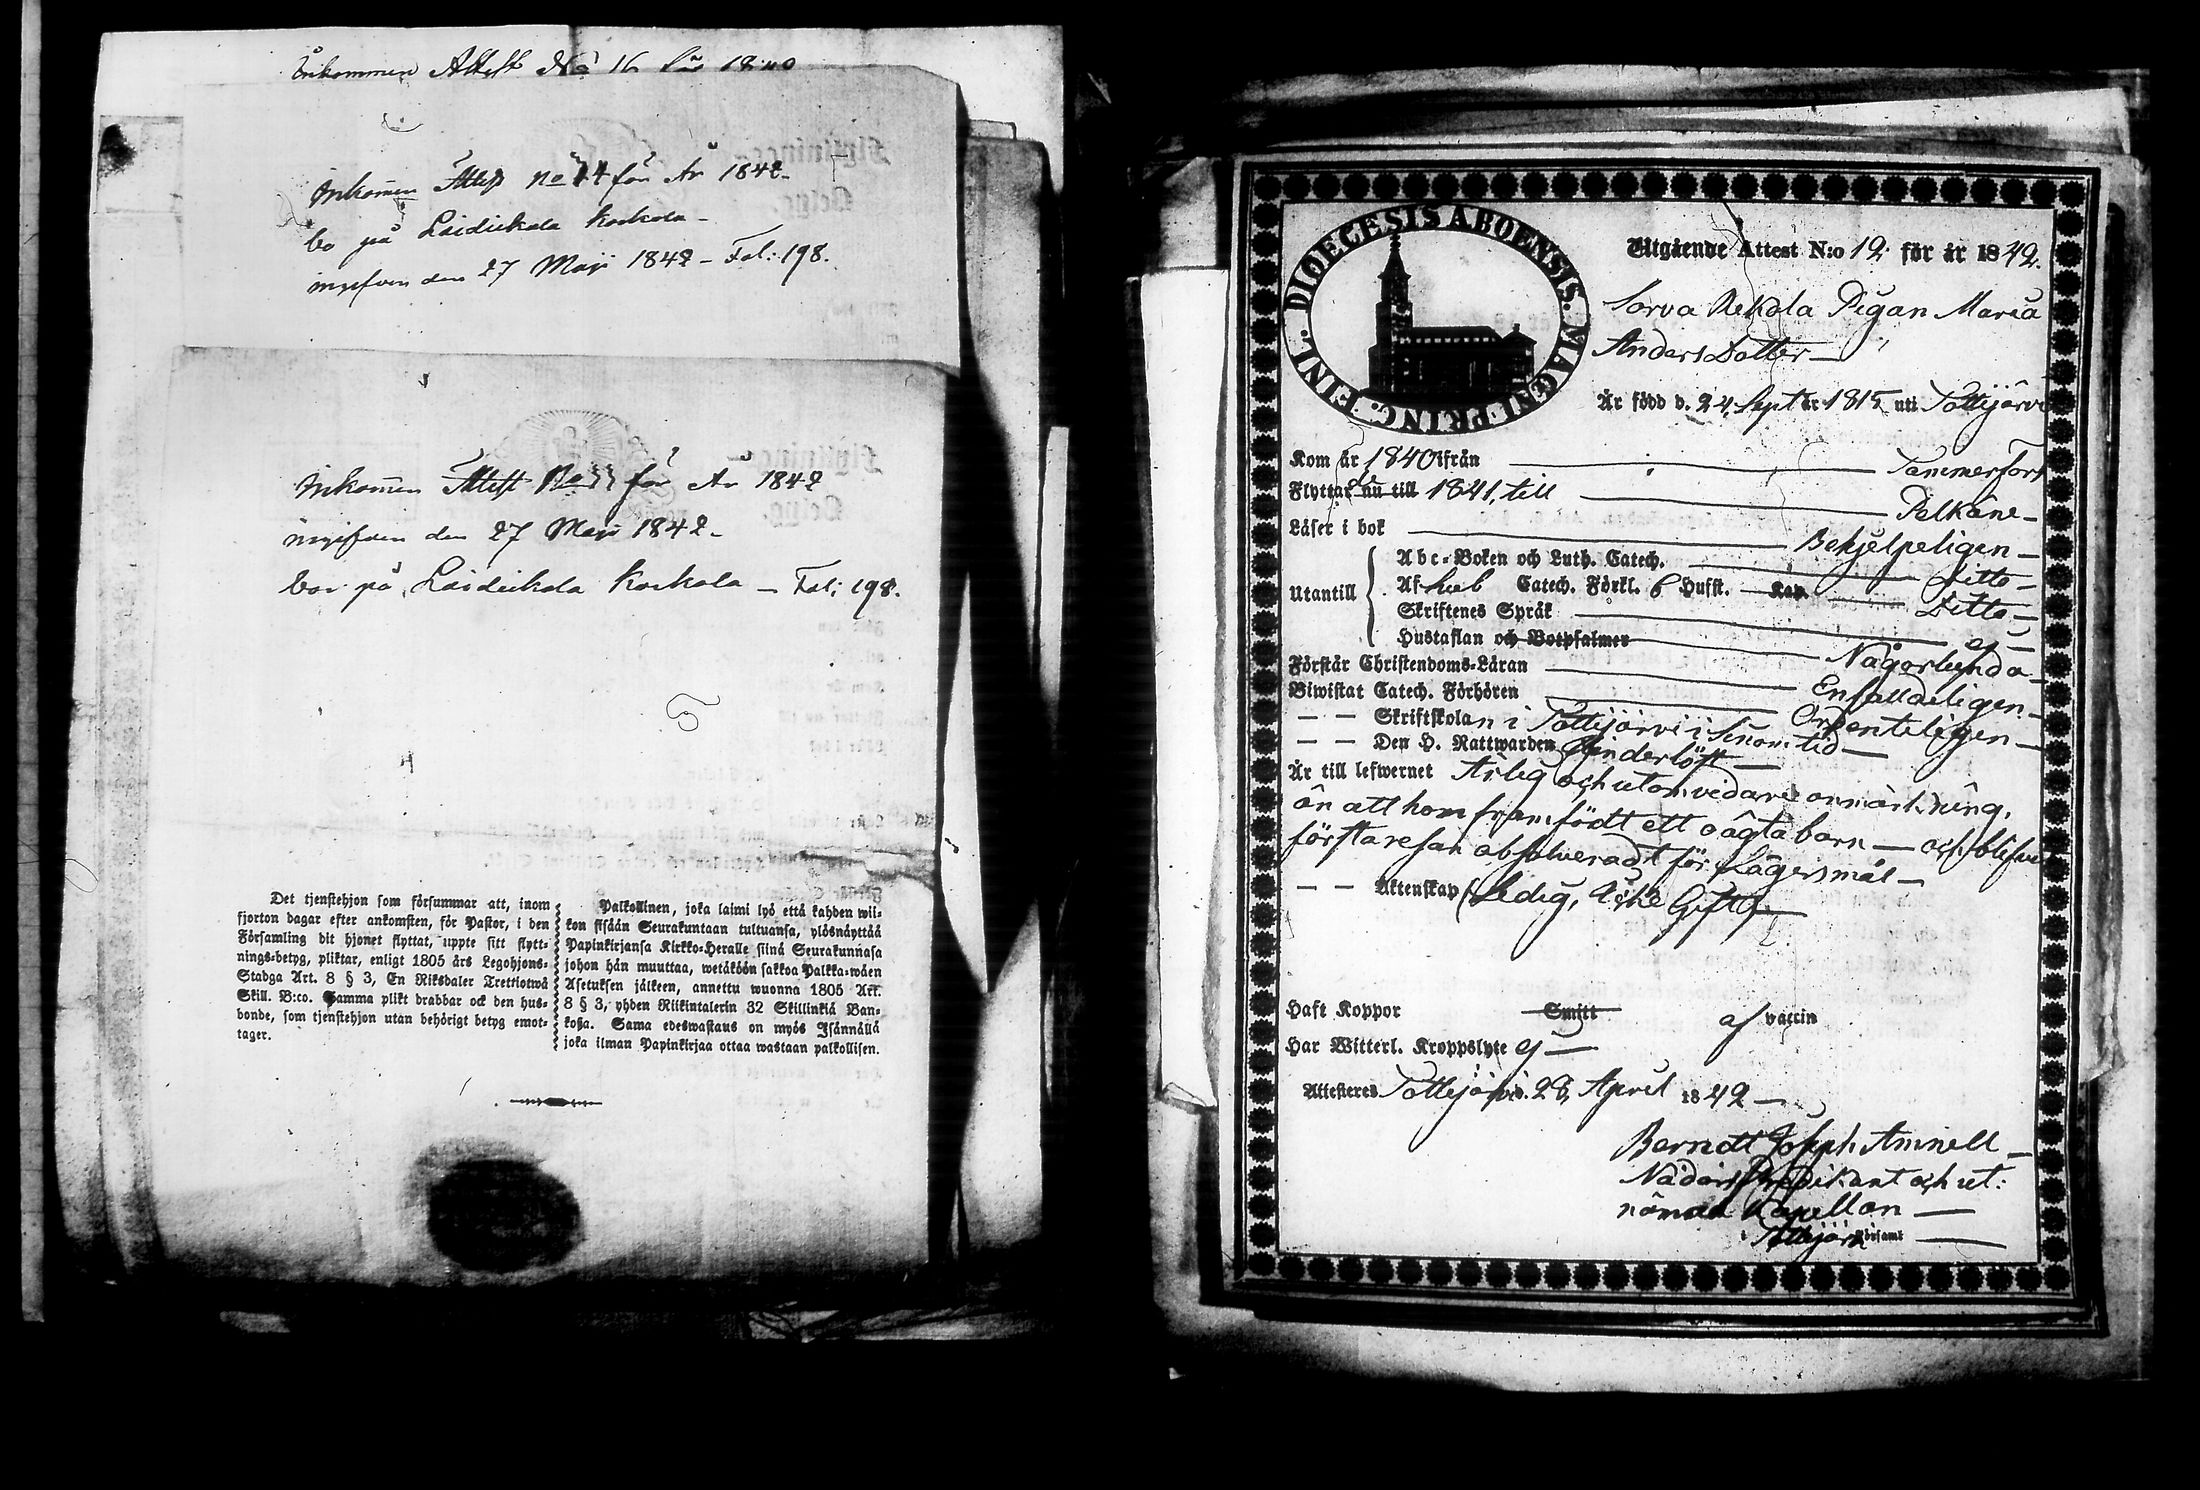 Inkommen Attest No 16 för 1840
Inkomen Attest No för År 1842
bo på Laidiikala Korkola
ingifven den 27 Maji 1842 - Fol: 198.
Inkomen Attest No för År 1842
ingifven den 27 Maji 1842
bor på Laidiikala Korkola - Fol: 198.
Det tjenstehjon som försummar att, inom
fjorton dagar efter ankomsten, för Pastor, i den
Församling dit hjonet flyttat, uppte sitt flytt-
nings-betyg, pliktar, enligt 1805 års Legohjons-
Stadga Art. 8 § 3, En Riksdaler Trettiotwå
Skill. B:co. Samma plikt drabbar ock den hus-
bonde, som tjenstehjon utan behörigt betyg emot-
tager.
Palkollinen, joka laimi lyö että kahden wii-
kon sisään Seurakuntaan tultuansa, ylösnäyttää
Papinkirjansa Kirkko-Heralle siinä Seurakunnasa
johon hän muuttaa, wetäköön sakkoa Palkka-wäen
Asetuksen jälkeen, annettu wuonna 1805 Art.
8 § 3, yhden Riikintalerin 32 Skillinkiä Ban-
kosa. Sama edeswastaus on myös Isännällä
joka ilman Papinkirjaa ottaa wastaan palkollisen.
DIOECESIS ABOENSIS. MAGNI PRINC. FINL.
Utgående Attest N:o 12 för år 1842.
Sorva Rekola Pigan Maria
Anders Dotter
Är född d. 24 Sept år 1815 uti Tottijärvi
Kom år 1840 ifrån Tammerfors
Flyttar nu till 1841, till Pelkäne
Läser i bok Behjelpeligen
Utantill
Abc-Boken och Luth. Catech. Ditto
Af Catech. Förkl. 6 Hufst. Kap. Ditto
Skriftenes Språk ej
Hustaflan och Botpsalmer
Förstår Christendoms-Läran Någorlunda
Biwistat Catech. Förhören Enfaldeligen
— — Skriftskolan i Tottijärvi i sinom tid Ordenteligen
— — Den H. Nattwarden
Är till lefwernet Ärlig och utom vidare anmärkning,
än att hon framfödt ett oägta barn — och blifvit
första resan absolverad för Lägersmål —
— — Äktenskap Ledig, icke Gift
Haft Koppor Smitt af vaccin
Har Witterl. Kroppslyte ej
Attesteres Tottijärvi d. 28 April 1842
Berndt Joseph Aminell
Nådårs Predikant och ut:
nämnd Kapellan
i Tottijärvi Församl